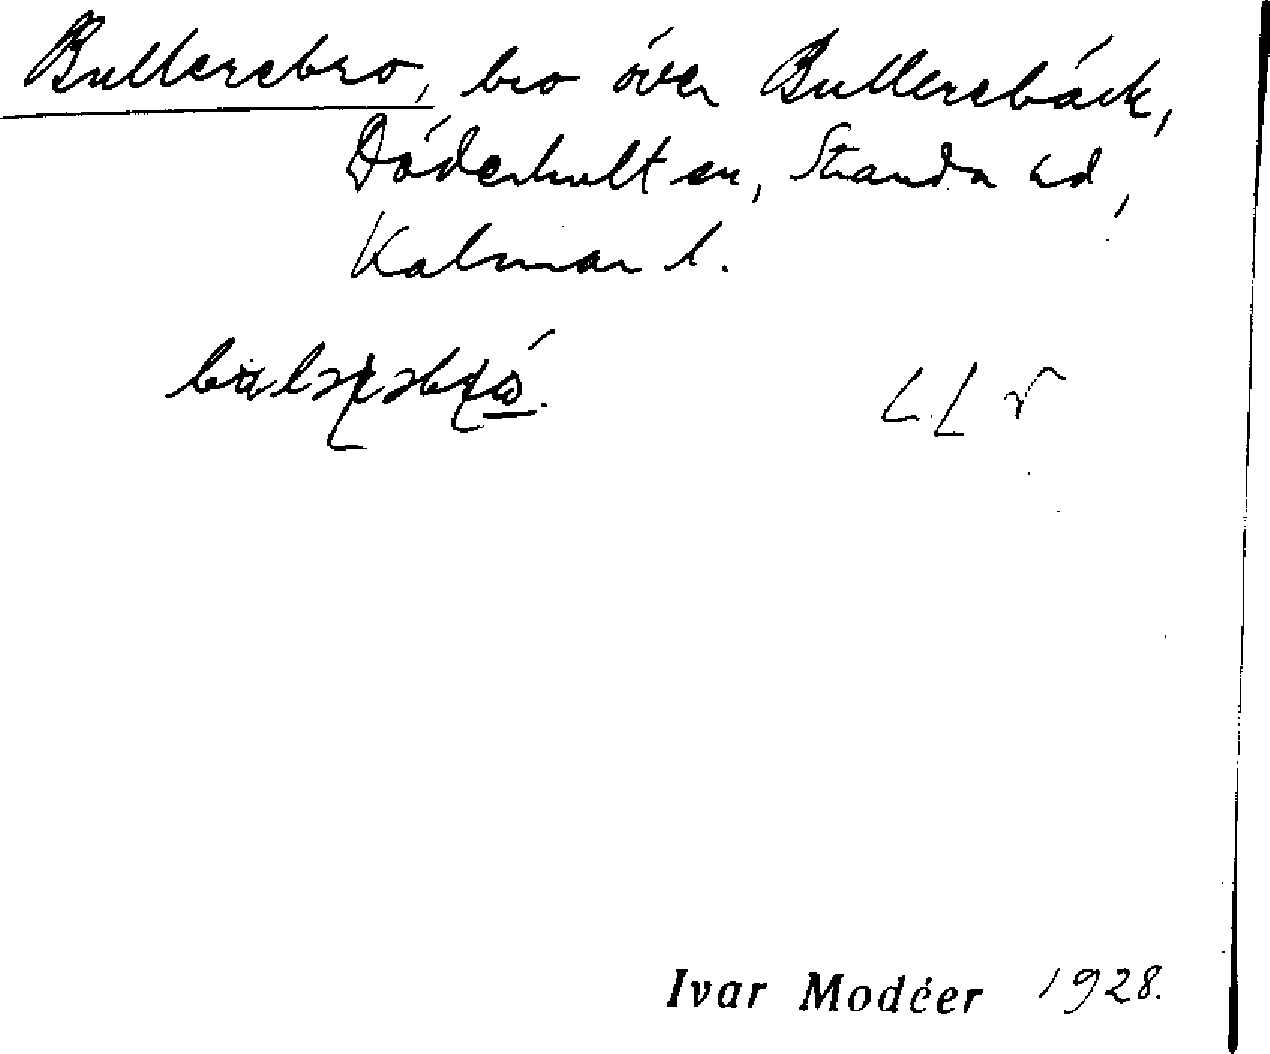 Bullerebro, bro över Bullerebäck,
Döderhult sn, Stranda hd,
Kalmar l.
Ivar Modéer 1928.